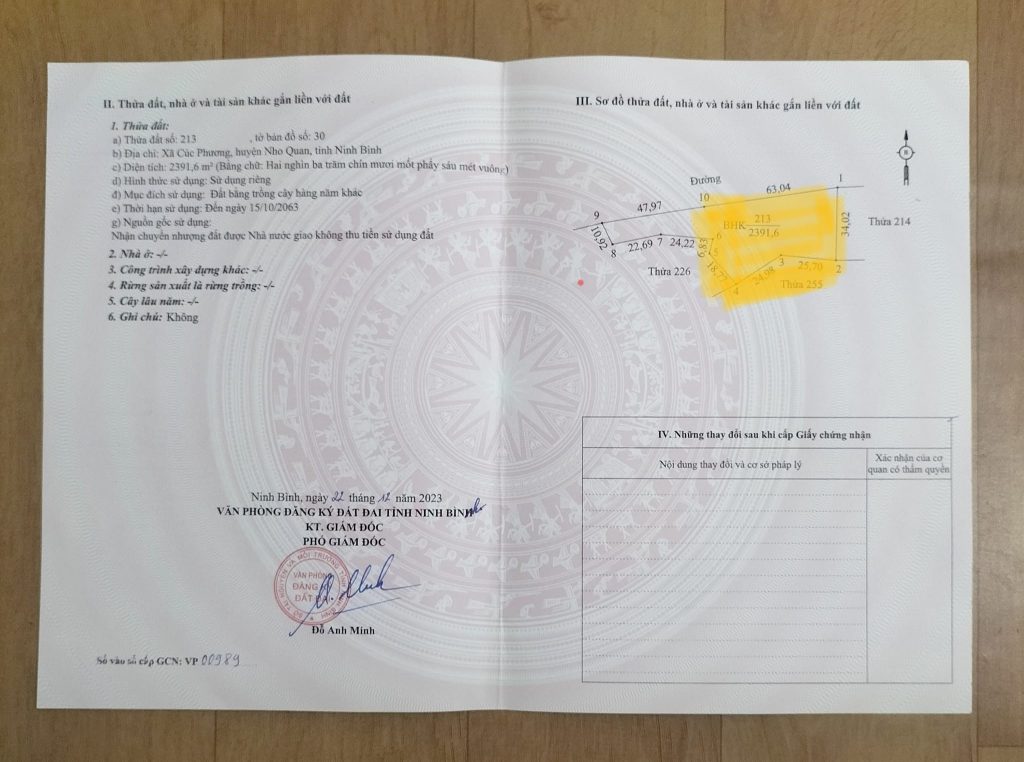 II. Thửa đất, nhà ở và tài sản khác gắn liền với đất
1. Thửa đất:
a) Thửa đất số: 213 , tờ bản đồ số: 30
b) Địa chỉ: Xã Cúc Phương, huyện Nho Quan, tỉnh Ninh Bình
c) Diện tích: 2391,6 m² (Bằng chữ: Hai nghìn ba trăm chín mươi mốt phẩy sáu mét vuông)
d) Hình thức sử dụng: Sử dụng riêng
đ) Mục đích sử dụng: Đất bằng trồng cây hàng năm khác
e) Thời hạn sử dụng: Đến ngày 15/10/2063
g) Nguồn gốc sử dụng:
Nhận chuyển nhượng đất được Nhà nước giao không thu tiền sử dụng đất
2. Nhà ở: -/-
3. Công trình xây dựng khác: -/-
4. Rừng sản xuất là rừng trồng: -/-
5. Cây lâu năm: -/-
6. Ghi chú: Không
Ninh Bình, ngày 22 tháng 12 năm 2023
VĂN PHÒNG ĐĂNG KÝ ĐẤT ĐAI TỈNH NINH BÌNH
KT. GIÁM ĐỐC
PHÓ GIÁM ĐỐC
VĂN PHÒNG
ĐĂNG
ĐẤT ĐAI
Đỗ Anh Minh
Số vào sổ cấp GCN: VP 00989
III. Sơ đồ thửa đất, nhà ở và tài sản khác gắn liền với đất
Đường
B
1
63,04
10
47,97
9
10,92
8
22,69
7
24,22
6
6,83
5
18,7
4
24,98
3
25,70
2
34,02
BHK 213
2391,6
Thửa 214
Thửa 226
Thửa 255
IV. Những thay đổi sau khi cấp Giấy chứng nhận
Nội dung thay đổi và cơ sở pháp lý
Xác nhận của cơ
quan có thẩm quyền